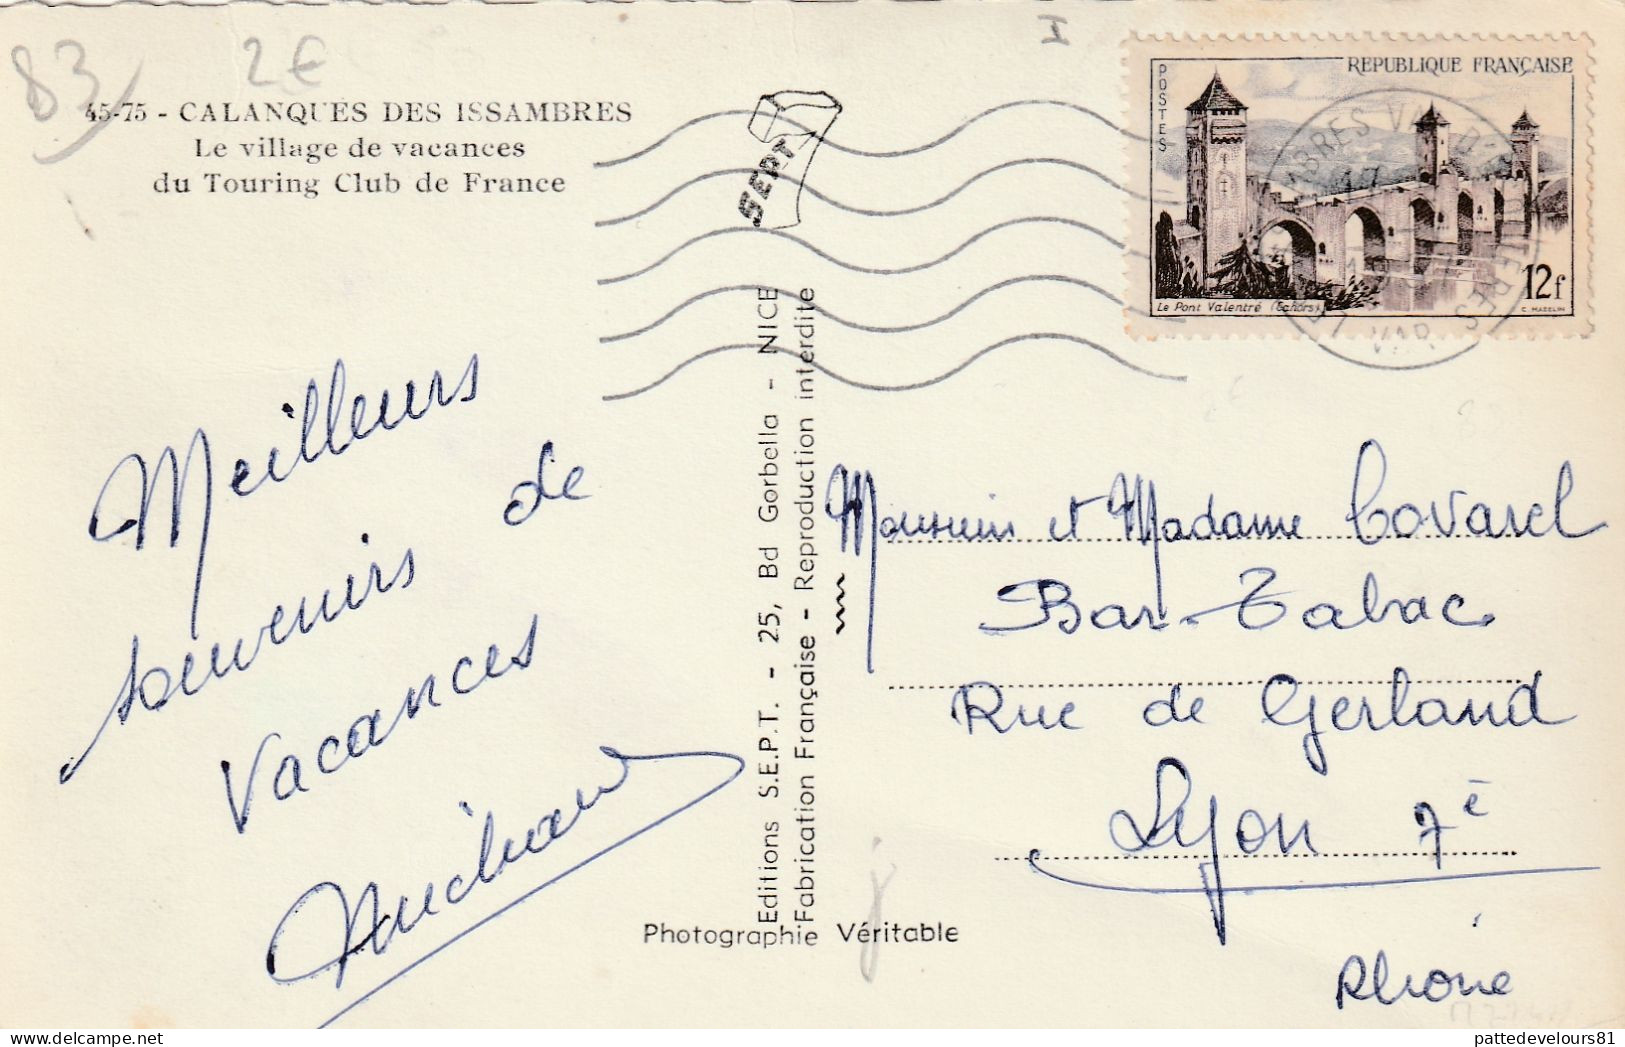 83
2€
I
45-75 - CALANQUES DES ISSAMBRES
Le village de vacances
du Touring Club de France
SEPT
POSTES
REPUBLIQUE FRANÇAISE
12f
Le Pont Valentré (Cahors)
C. MAZELIN
VAR
Meilleurs
souvenirs de
Vacances
Editions S.E.P.T. - 25, Bd Gorbella - NICE
Fabrication Française - Reproduction interdite
Photographie Véritable
Monsieur et Madame Covarel
Bar-Tabac
Rue de Gerland
Lyon 7è
Rhône
pattedevelours81